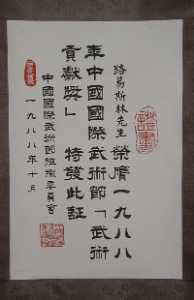 路易斯林先生榮膺一九八八
年中國國際武術節「武術
貢獻獎」特發此証
中國國際武術節組織委員會
一九八八年十月
證書